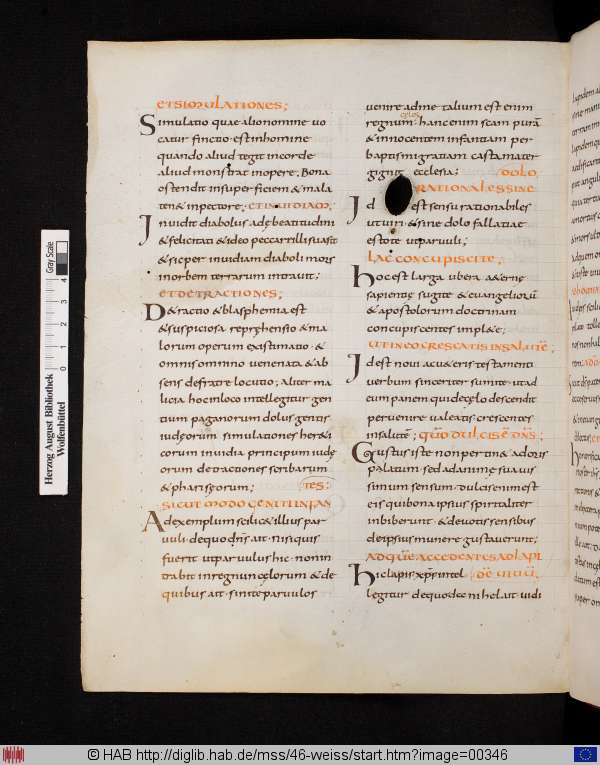 ETSIMULATIONES;
Simulatio quae alio nomine uo
catur finctio · est in homine
quando aliud tegit in corde
aliud monstrat in opere; Bona
ostendit insuper ficiem & mala
ten& in pectore; ETINUIDIAM;
Inuidit diabolus adę beatitudini
& felicitati & ideo peccarr illi suasit
& sic per inuidiam diaboli mors
in orbem terrarum intrauit;
ETDETRACTIONES;
D&ractio & blasphemia est
& suspiciosa repręhensio & ma
lorum operum existimatio · &
omnis omnino uenenata & ab
sens de fratre locutio; aliter ma
licia hoc in loco intellegitur gen
tium paganorum dolus gentis
iudęorum simulationes her&i
corum inuidia principum iudę
orum detractiones scribarum
& pharisęorum; TES;
SICUT MODO GENITI INFAN
Ad exemplum scilic& illius par
uuli · de quo dn̄s ait · nisi quis
fuerit ut paruulus hic · non in
trabit in regnum cęlorum & de
quibus ait · sinite paruulos
uenire ad me talium est enim
regnum · celor̄ hanc enim scam̄ purā
& innocentem infantiam per
baptismi gratiam casta mater
gignit ecclesia; DOLO
RATIONALES SINE
Id est sensu rationabiles
ut uiri · & sine dolo fallaciae
estote ut paruuli;
LAC CONCUPISCITE;
Hoc est larga ubera aeternę
sapientię sugite & euangeliorū
& apostolorum doctrinam
concupiscentes impl&e;
UT IN EO CRESCATIS IN SALUTĒ;
Id est noui ac ueteris testamenti
uerbum sinceriter sumite · ut ad
eum panem qui de cęlo descendit
peruenire ualeatis crescentes
in salutē; QUŌ DULCIS Ē DN̄S;
Gustus iste non pertin& ad oris
palatum sed ad animę suauis
simum sensum · dulcis enim est
eis qui bona ipsius spiritaliter
inbiberunt · & deuotis sensibus
de ipsius munere gustauerunt;
AD QUĒ ACCEDENTES AD LAPI
DĒ UIUŪ;
Hic lapis xp̄s intel
legitur de quo dicere nihel ait uidi
Herzog August Bibliothek
Wolfenbüttel
Gray Scale
0 1 2 3 4
© HAB http://diglib.hab.de/mss/46-weiss/start.htm?image=00346